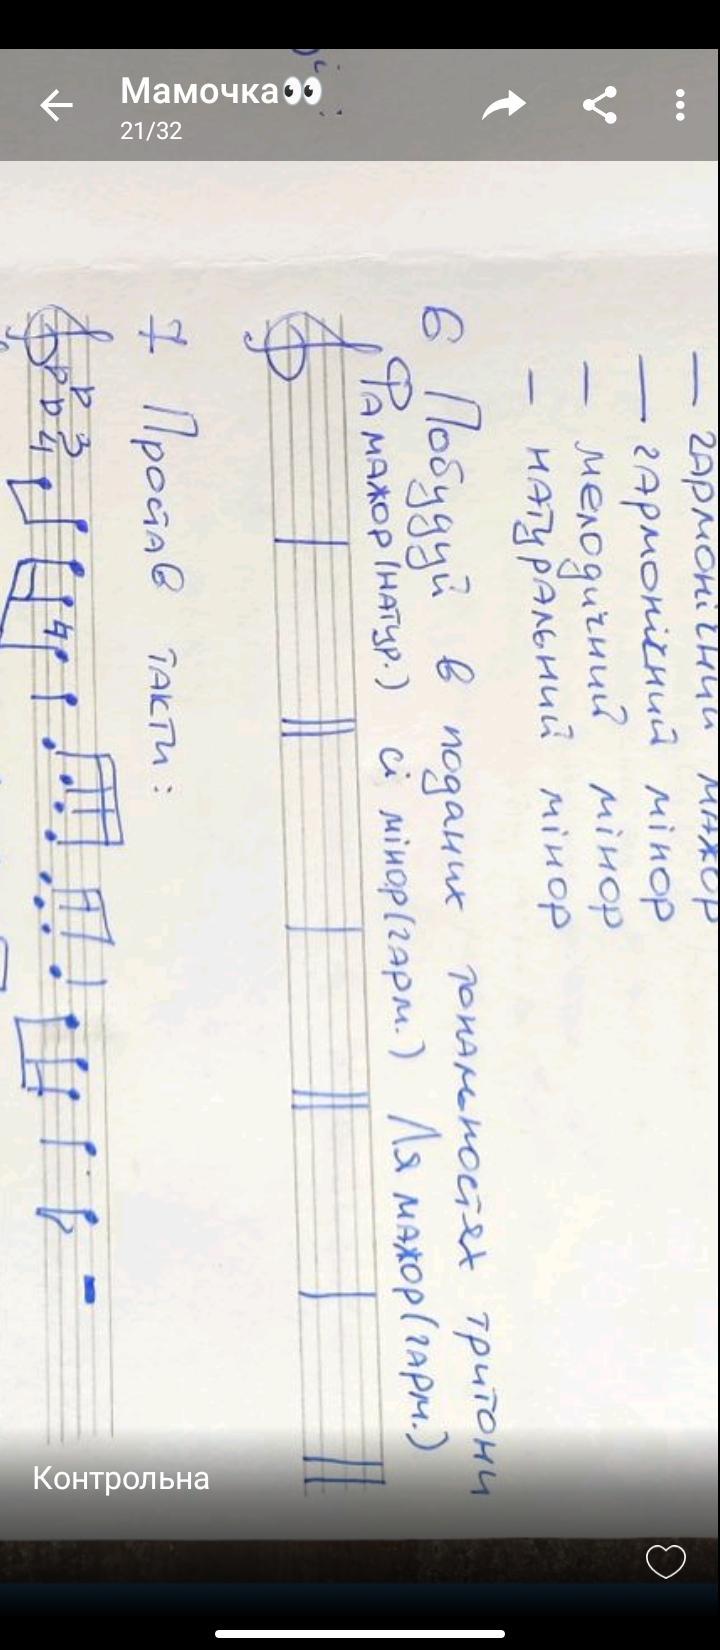 Мамочка👀
21/32
— гармонічний мажор
— гармонічний мінор
— мелодичний мінор
— натуральний мінор
6 Побудуй в поданих тональностях тритони
Фа мажор (натур.) сі мінор (гарм.) Ля мажор (гарм.)
7 Простав такти:
3
4
Контрольна